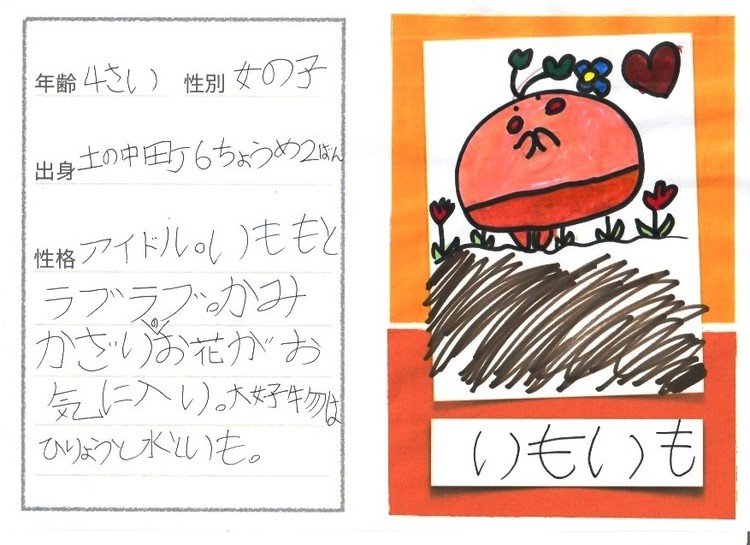 年齢 4さい 性別 女の子
出身 土の中田丁6ちょうめ2ばん
性格 アイドル。いももと
ラブラブ。かみ
かざりのお花がお
気に入り。大好物は
ひりょうと水といも。
いもいも